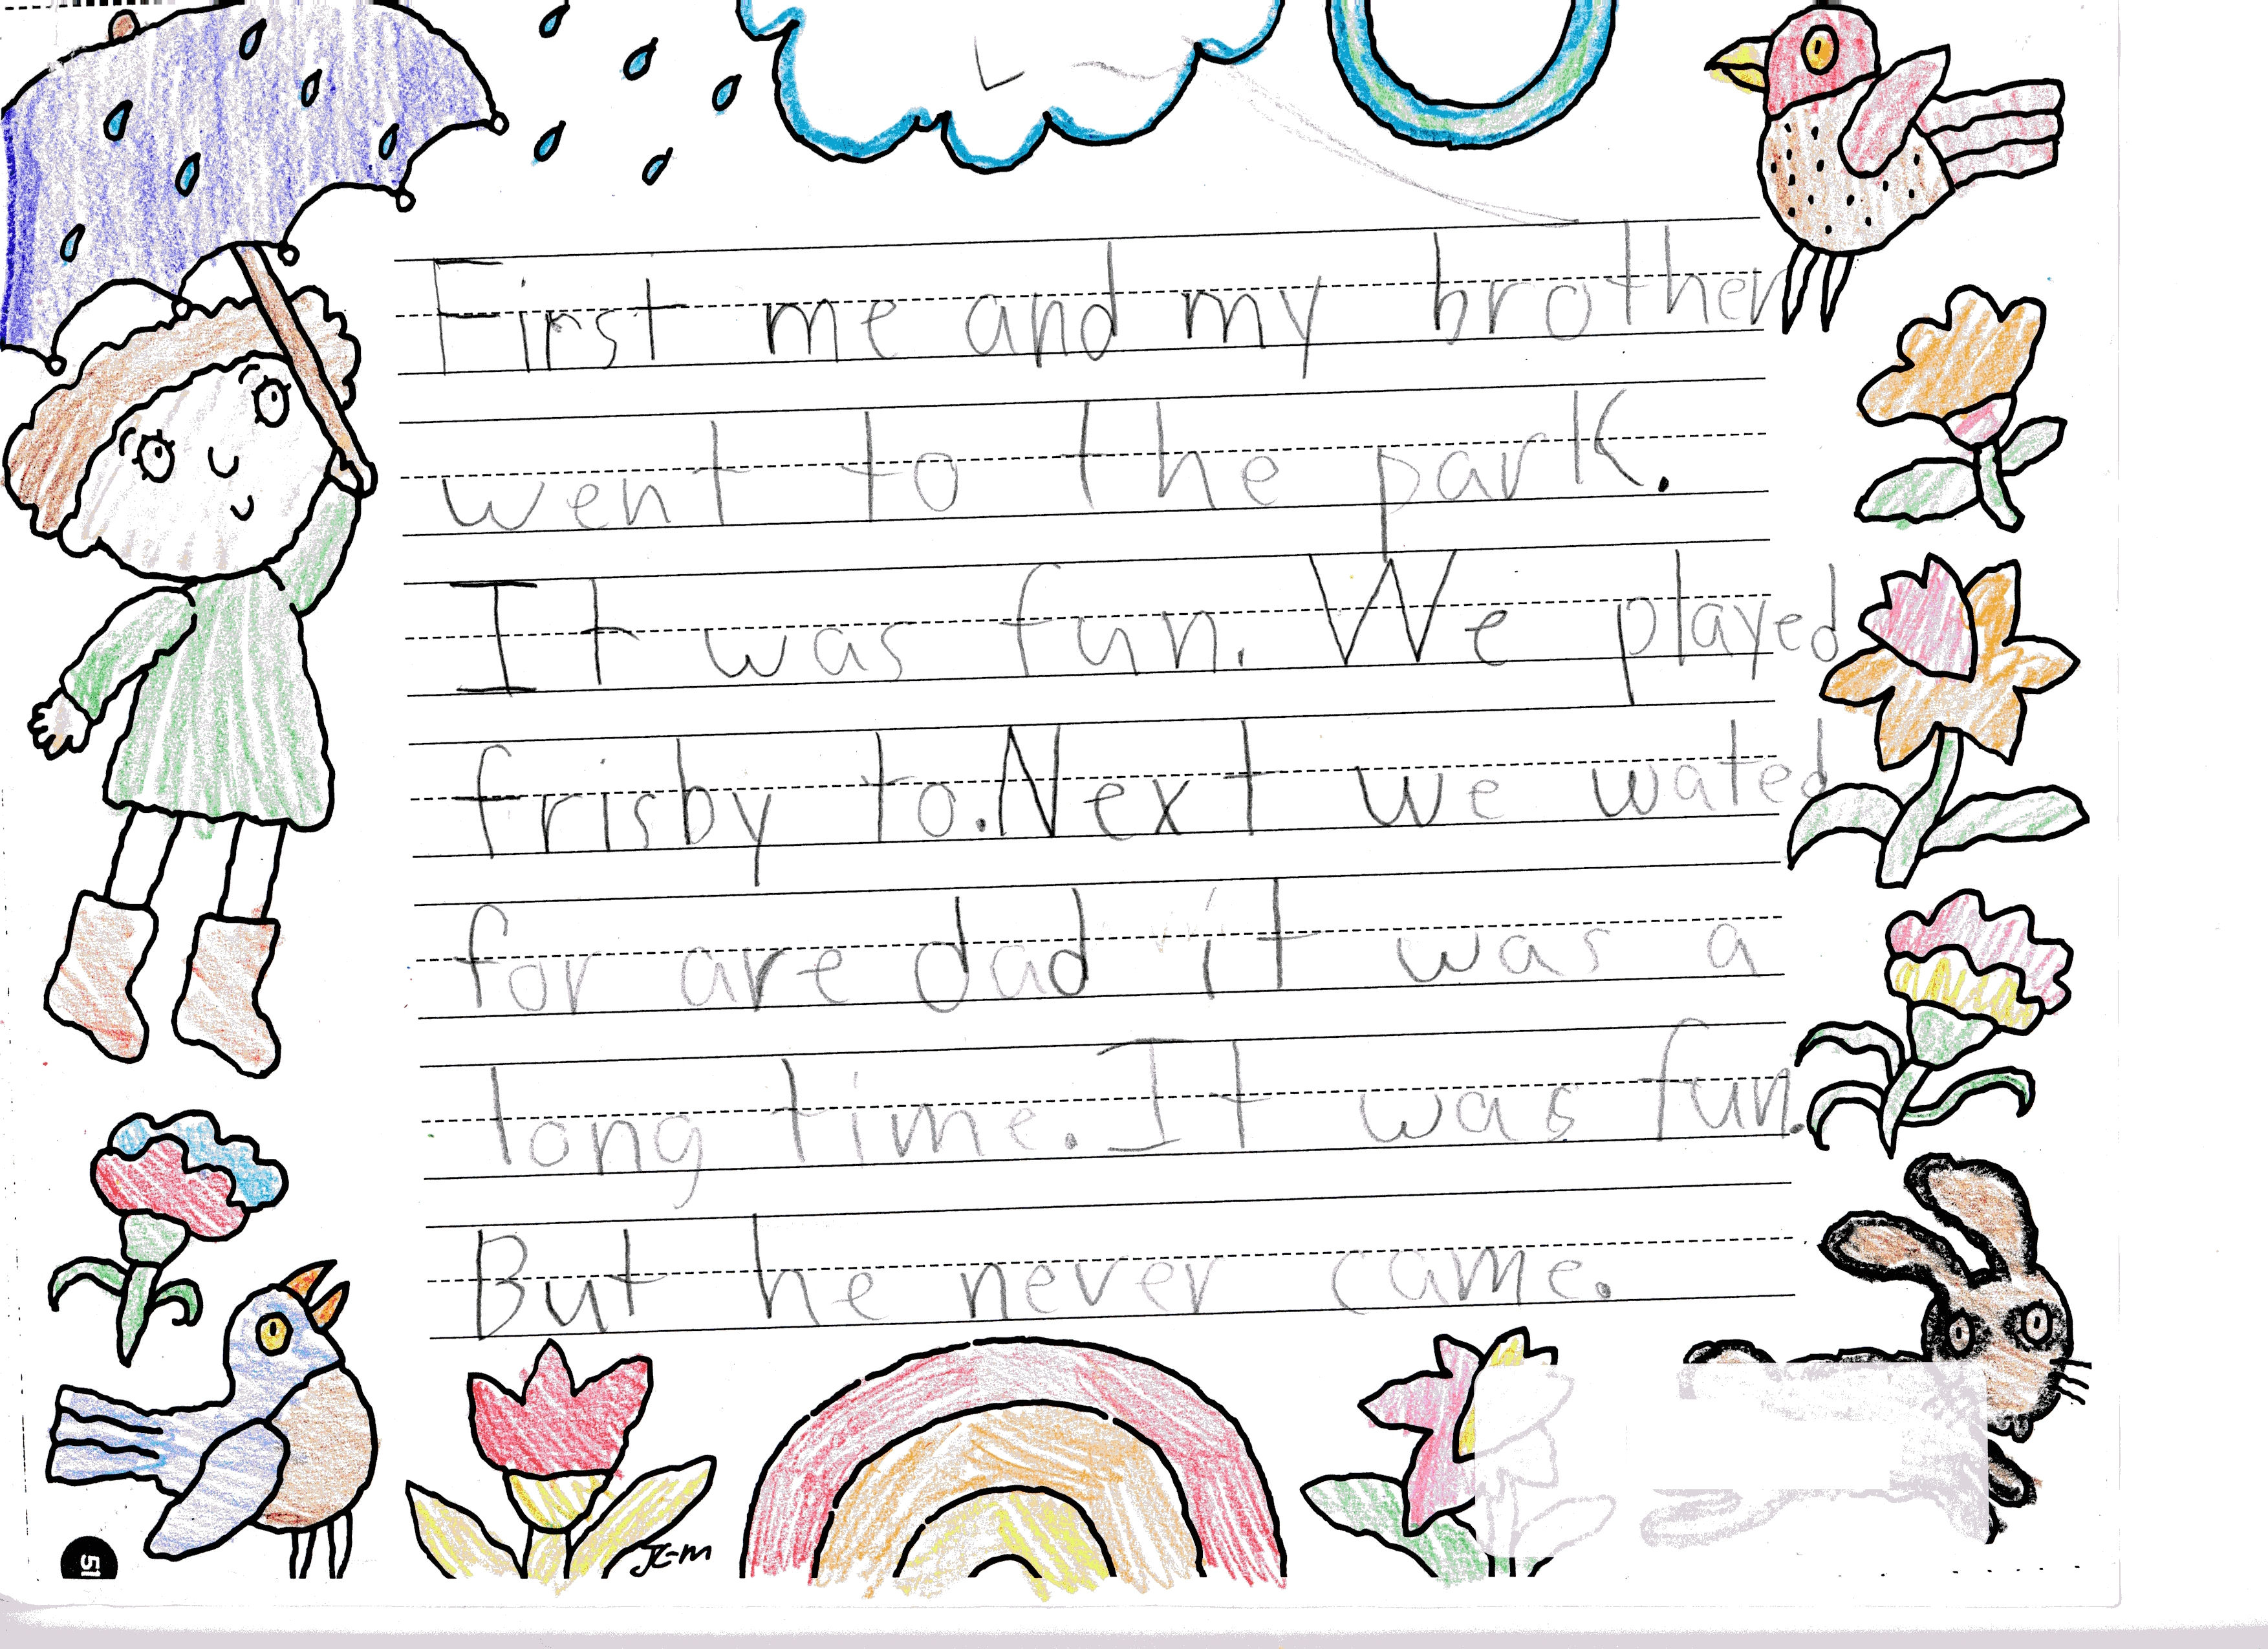 First me and my brother
went to the park.
It was fun. We played
frisby to. Next we wated
for are dad it was a
long time. It was fun.
But he never came.
JC-M
51